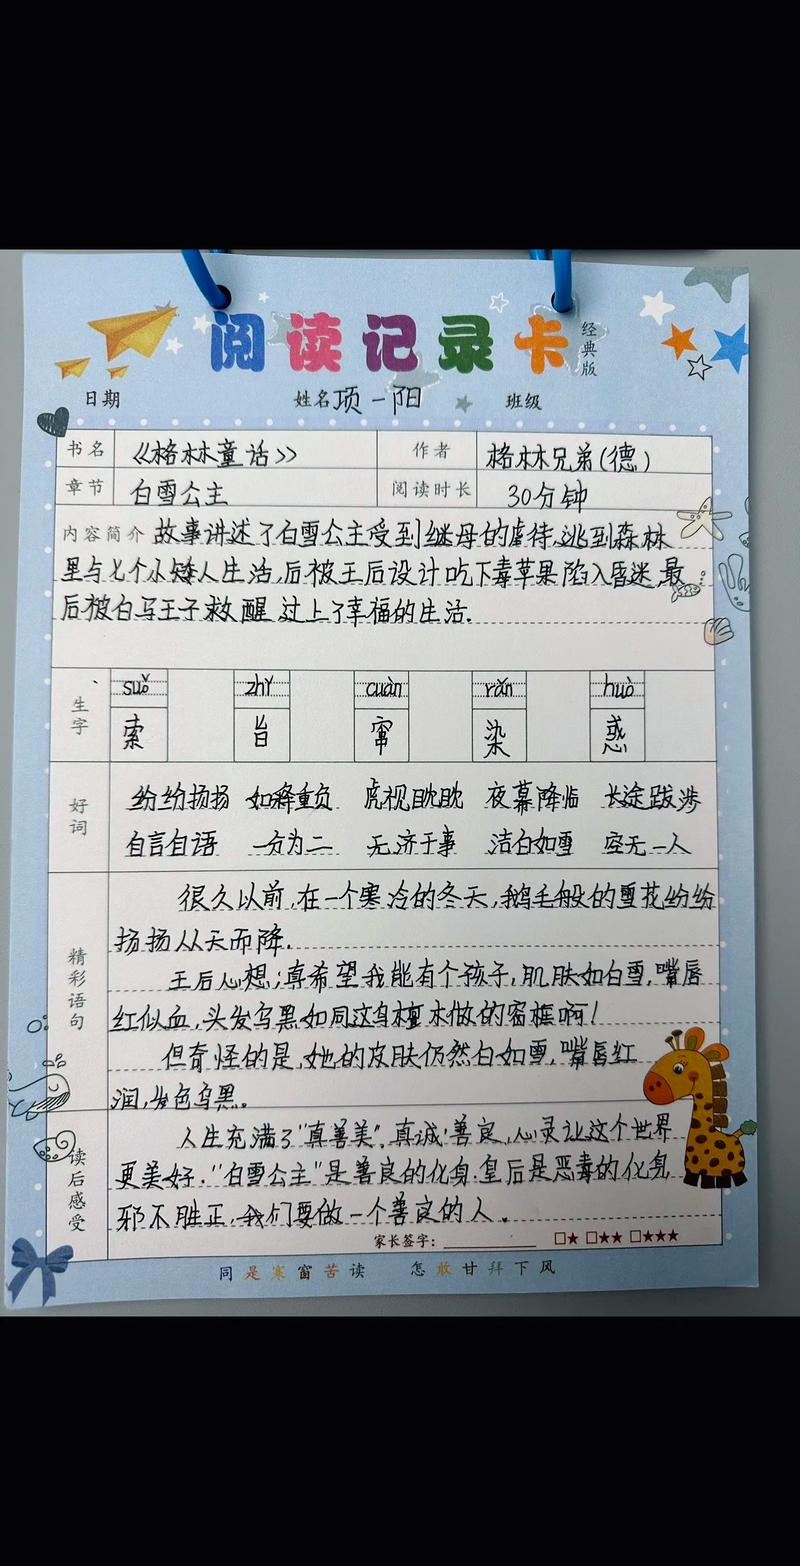 阅读记录卡 经典版
日期 姓名 项一阳 班级
书名 《格林童话》 作者 格林兄弟(德)
章节 白雪公主 阅读时长 30分钟
内容简介 故事讲述了白雪公主受到继母的虐待,逃到森林
里与七个小矮人生活,后被王后设计吃下毒苹果陷入昏迷,最
后被白马王子救醒,过上了幸福的生活.
生字
suǒ zhǐ cuàn rǎn huò
索 旨 窜 染 惑
好词
纷纷扬扬 如释重负 虎视眈眈 夜幕降临 长途跋涉
自言自语 一分为二 无济于事 洁白如雪 空无一人
精彩语句
很久以前,在一个寒冷的冬天,鹅毛般的雪花纷纷
扬扬从天而降.
王后心想;真希望我能有个孩子,肌肤如白雪,嘴唇
红似血,头发乌黑如同这乌檀木做的窗框啊!
但奇怪的是,她的皮肤仍然白如雪,嘴唇红
润,发色乌黑。
读后感受
人生充满了"真善美",真诚,善良,心灵让这个世界
更美好."白雪公主"是善良的化身.皇后是恶毒的化身,
邪不胜正,我们要做一个善良的人。
家长签字: □★ □★★ □★★★
同是寒窗苦读 怎敢甘拜下风